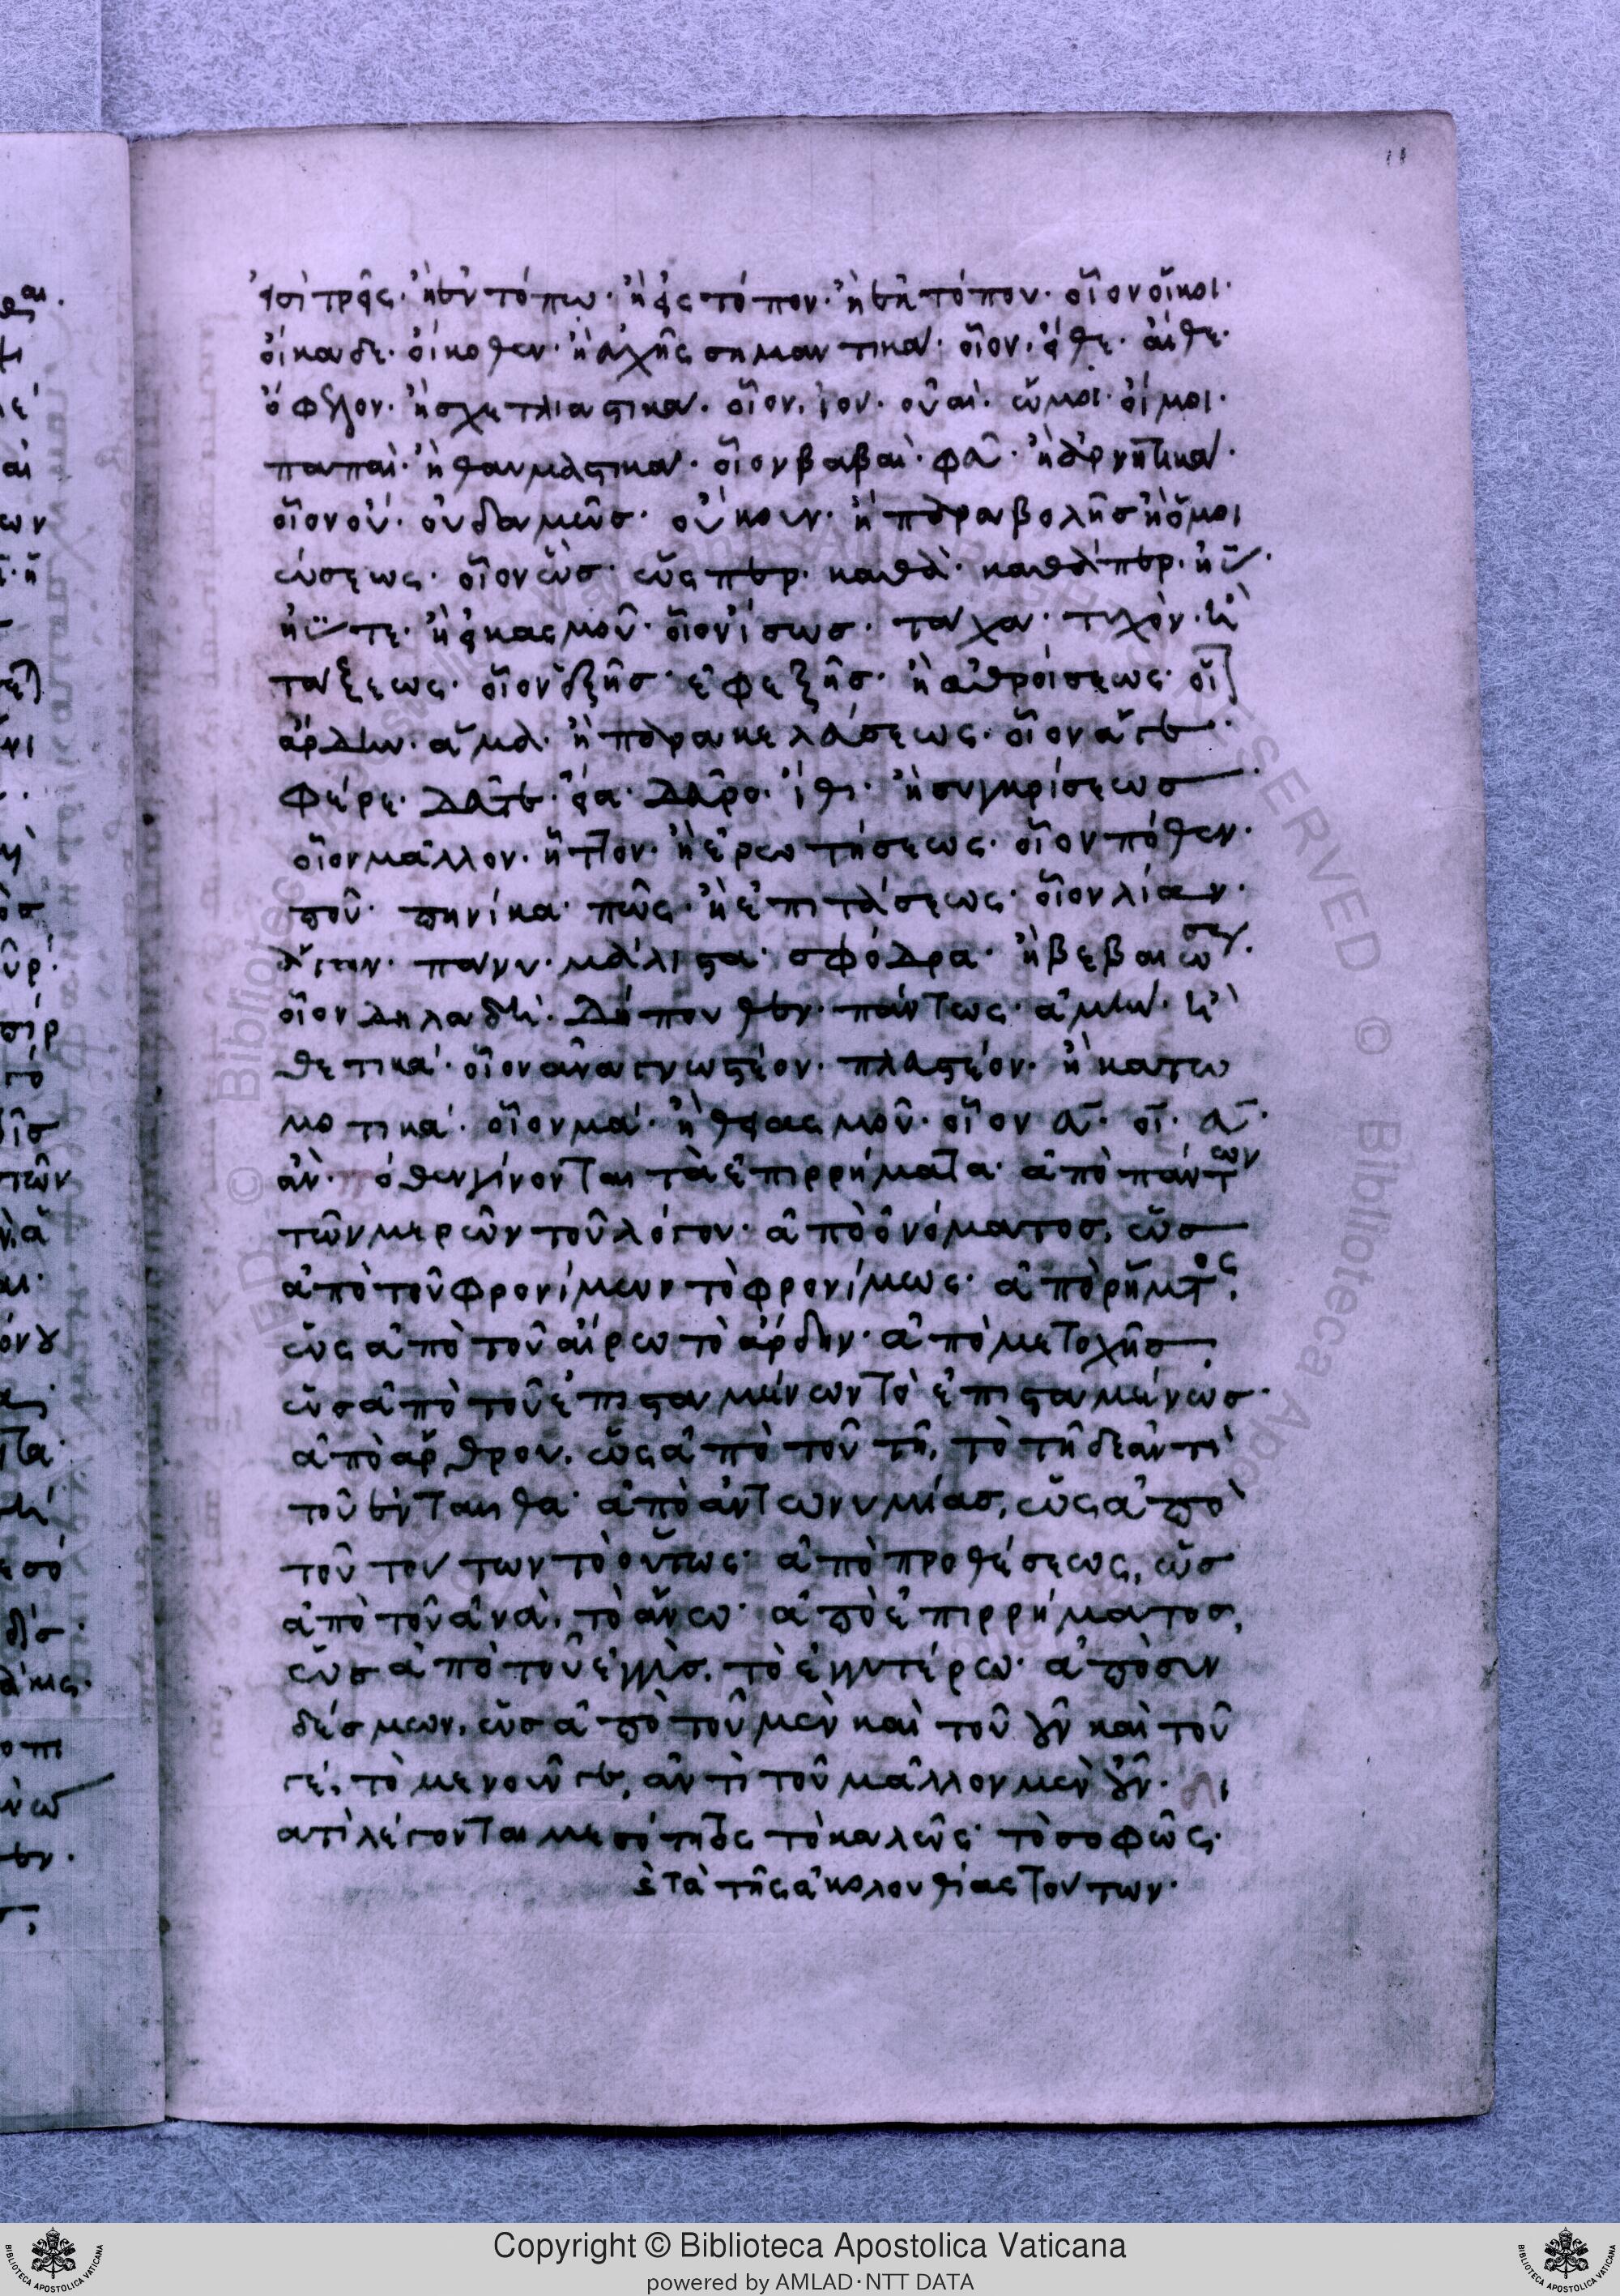 εἰσὶ τρεῖς· ἢ ἐν τόπω· ἢ εἰς τόπον· ἢ ἐκ τόπου· οἷον οἴκοι·
οἴκαδε· οἴκοθεν· ἢ εὐχῆς σημαντικά· οἷον, εἴθε· αἴθε·
ὄφελον· ἢ σχετλιαστικά· οἷον, ἰού· οὐαί· ὤμοι· οἴμοι·
παπαί· ἢ θαυμαστικά· οἷον βαβαί· φεῦ· ἢ ἀρνητικά·
οἷον οὐ· οὐδαμῶσ· οὔκουν· ἢ παραβολῆσ ἢ ὁμοι
ώσεως· οἷον ὡσ· ὥσπερ· καθά· καθάπερ· ἠΰ·
ἠΰτε· ἢ εἰκασμοῦ· οἷον ἴσωσ· τάχα· τυχόν· ἢ
τάξεως· οἷον ἑξῆσ· ἐφεξῆσ· ἢ ἀθροίσεως· οἷ
ἄρδην· ἅμα· ἢ παρακελεύσεως· οἷον ἄγε·
φέρε· δεῦτε· εἶα· δεῦρο· ἴθι· ἢ συγκρίσεωσ
οἷον μᾶλλον· ἧττον· ἢ ἐρωτήσεως· οἷον πόθεν·
ποῦ· πηνίκα· πῶς· ἢ ἐπιτάσεως· οἷον λίαν·
ἄγαν· πάνυ· μάλιστα· σφόδρα· ἢ βεβαιώσεως·
οἷον δηλαδή· δήπουθεν· πάντως· ἀμήν· ἢ
θετικά· οἷον ἀναγνωστέον· πλαστέον· ἢ κατω
μοτικά· οἷον μά· ἢ θειασμοῦ· οἷον
πόθεν γίνονται τὰ ἐπιρρήματα· ἀπὸ πάντων
τῶν μερῶν τοῦ λόγου· ἀπὸ ὀνόματοσ, ὡσ
ἀπὸ τοῦ φρονίμων τὸ φρονίμως· ἀπὸ ῥήματος,
ὡς ἀπὸ τοῦ αἴρω τὸ ἄρδην· ἀπὸ μετοχῆσ,
ὡσ ἀπὸ τοῦ ἐπισταμένων τὸ ἐπισταμένωσ·
ἀπὸ ἄρθρου, ὡς ἀπὸ τοῦ τῆ, τὸ τῆδε ἀντὶ
τοῦ ἐνταῦθα· ἀπὸ ἀντωνυμίασ, ὡς ἀπὸ
τοῦ τούτων τὸ οὕτως· ἀπὸ προθέσεως, ὡσ
ἀπὸ τοῦ ἀνὰ, τὸ ἄνω· ἀπὸ ἐπιρρήματοσ,
ὡσ ἀπὸ τοῦ ἐγγὺσ, τὸ ἐγγυτέρω· ἀπὸ συν
δέσμων, ὡσ ἀπὸ τοῦ μὲν καὶ τοῦ οὖν καὶ τοῦ
γέ, τὸ μενοῦνγε, ἀντὶ τοῦ μᾶλλον μὲν οὖν· δι
ατί λέγονται μεσότητος τὸ καλῶς· τὸ σοφῶς·
τὰ τῆς ἀκολουθίας τούτων·